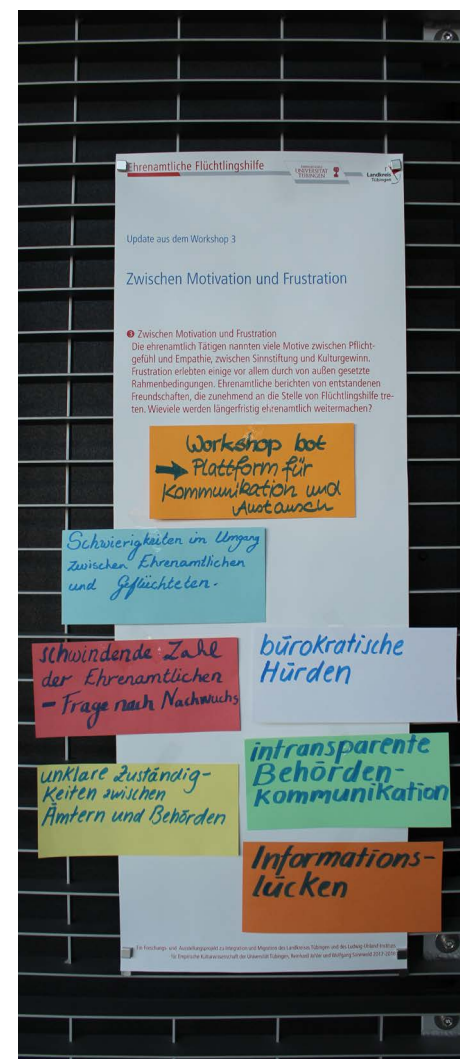 Ehrenamtliche Flüchtlingshilfe
UNIVERSITÄT
TÜBINGEN
Landkreis
Tübingen
Update aus dem Workshop 3
Zwischen Motivation und Frustration
3 Zwischen Motivation und Frustration
Die ehrenamtlich Tätigen nannten viele Motive zwischen Pflicht-
gefühl und Empathie, zwischen Sinnstiftung und Kulturgewinn.
Frustration erlebten einige vor allem durch von außen gesetzte
Rahmenbedingungen. Ehrenamtliche berichten von entstandenen
Freundschaften, die zunehmend an die Stelle von Flüchtlingshilfe tre-
ten. Wieviele werden längerfristig ehrenamtlich weitermachen?
Workshop bot
→ Plattform für
Kommunikation und
Austausch
Schwierigkeiten im Umgang
zwischen Ehrenamtlichen
und Geflüchteten.
schwindende Zahl
der Ehrenamtlichen
- Frage nach Nachwuchs
bürokratische
Hürden
unklare Zuständig-
keiten zwischen
Ämtern und Behörden
intransparente
Behörden-
kommunikation
Informations-
lücken
Ein Forschungs- und Ausstellungsprojekt zu Integration und Migration des Landkreises Tübingen und des Ludwig-Uhland-Instituts
für Empirische Kulturwissenschaft der Universität Tübingen, Reinhard Johler und Wolfgang Sannwald 2017-2018